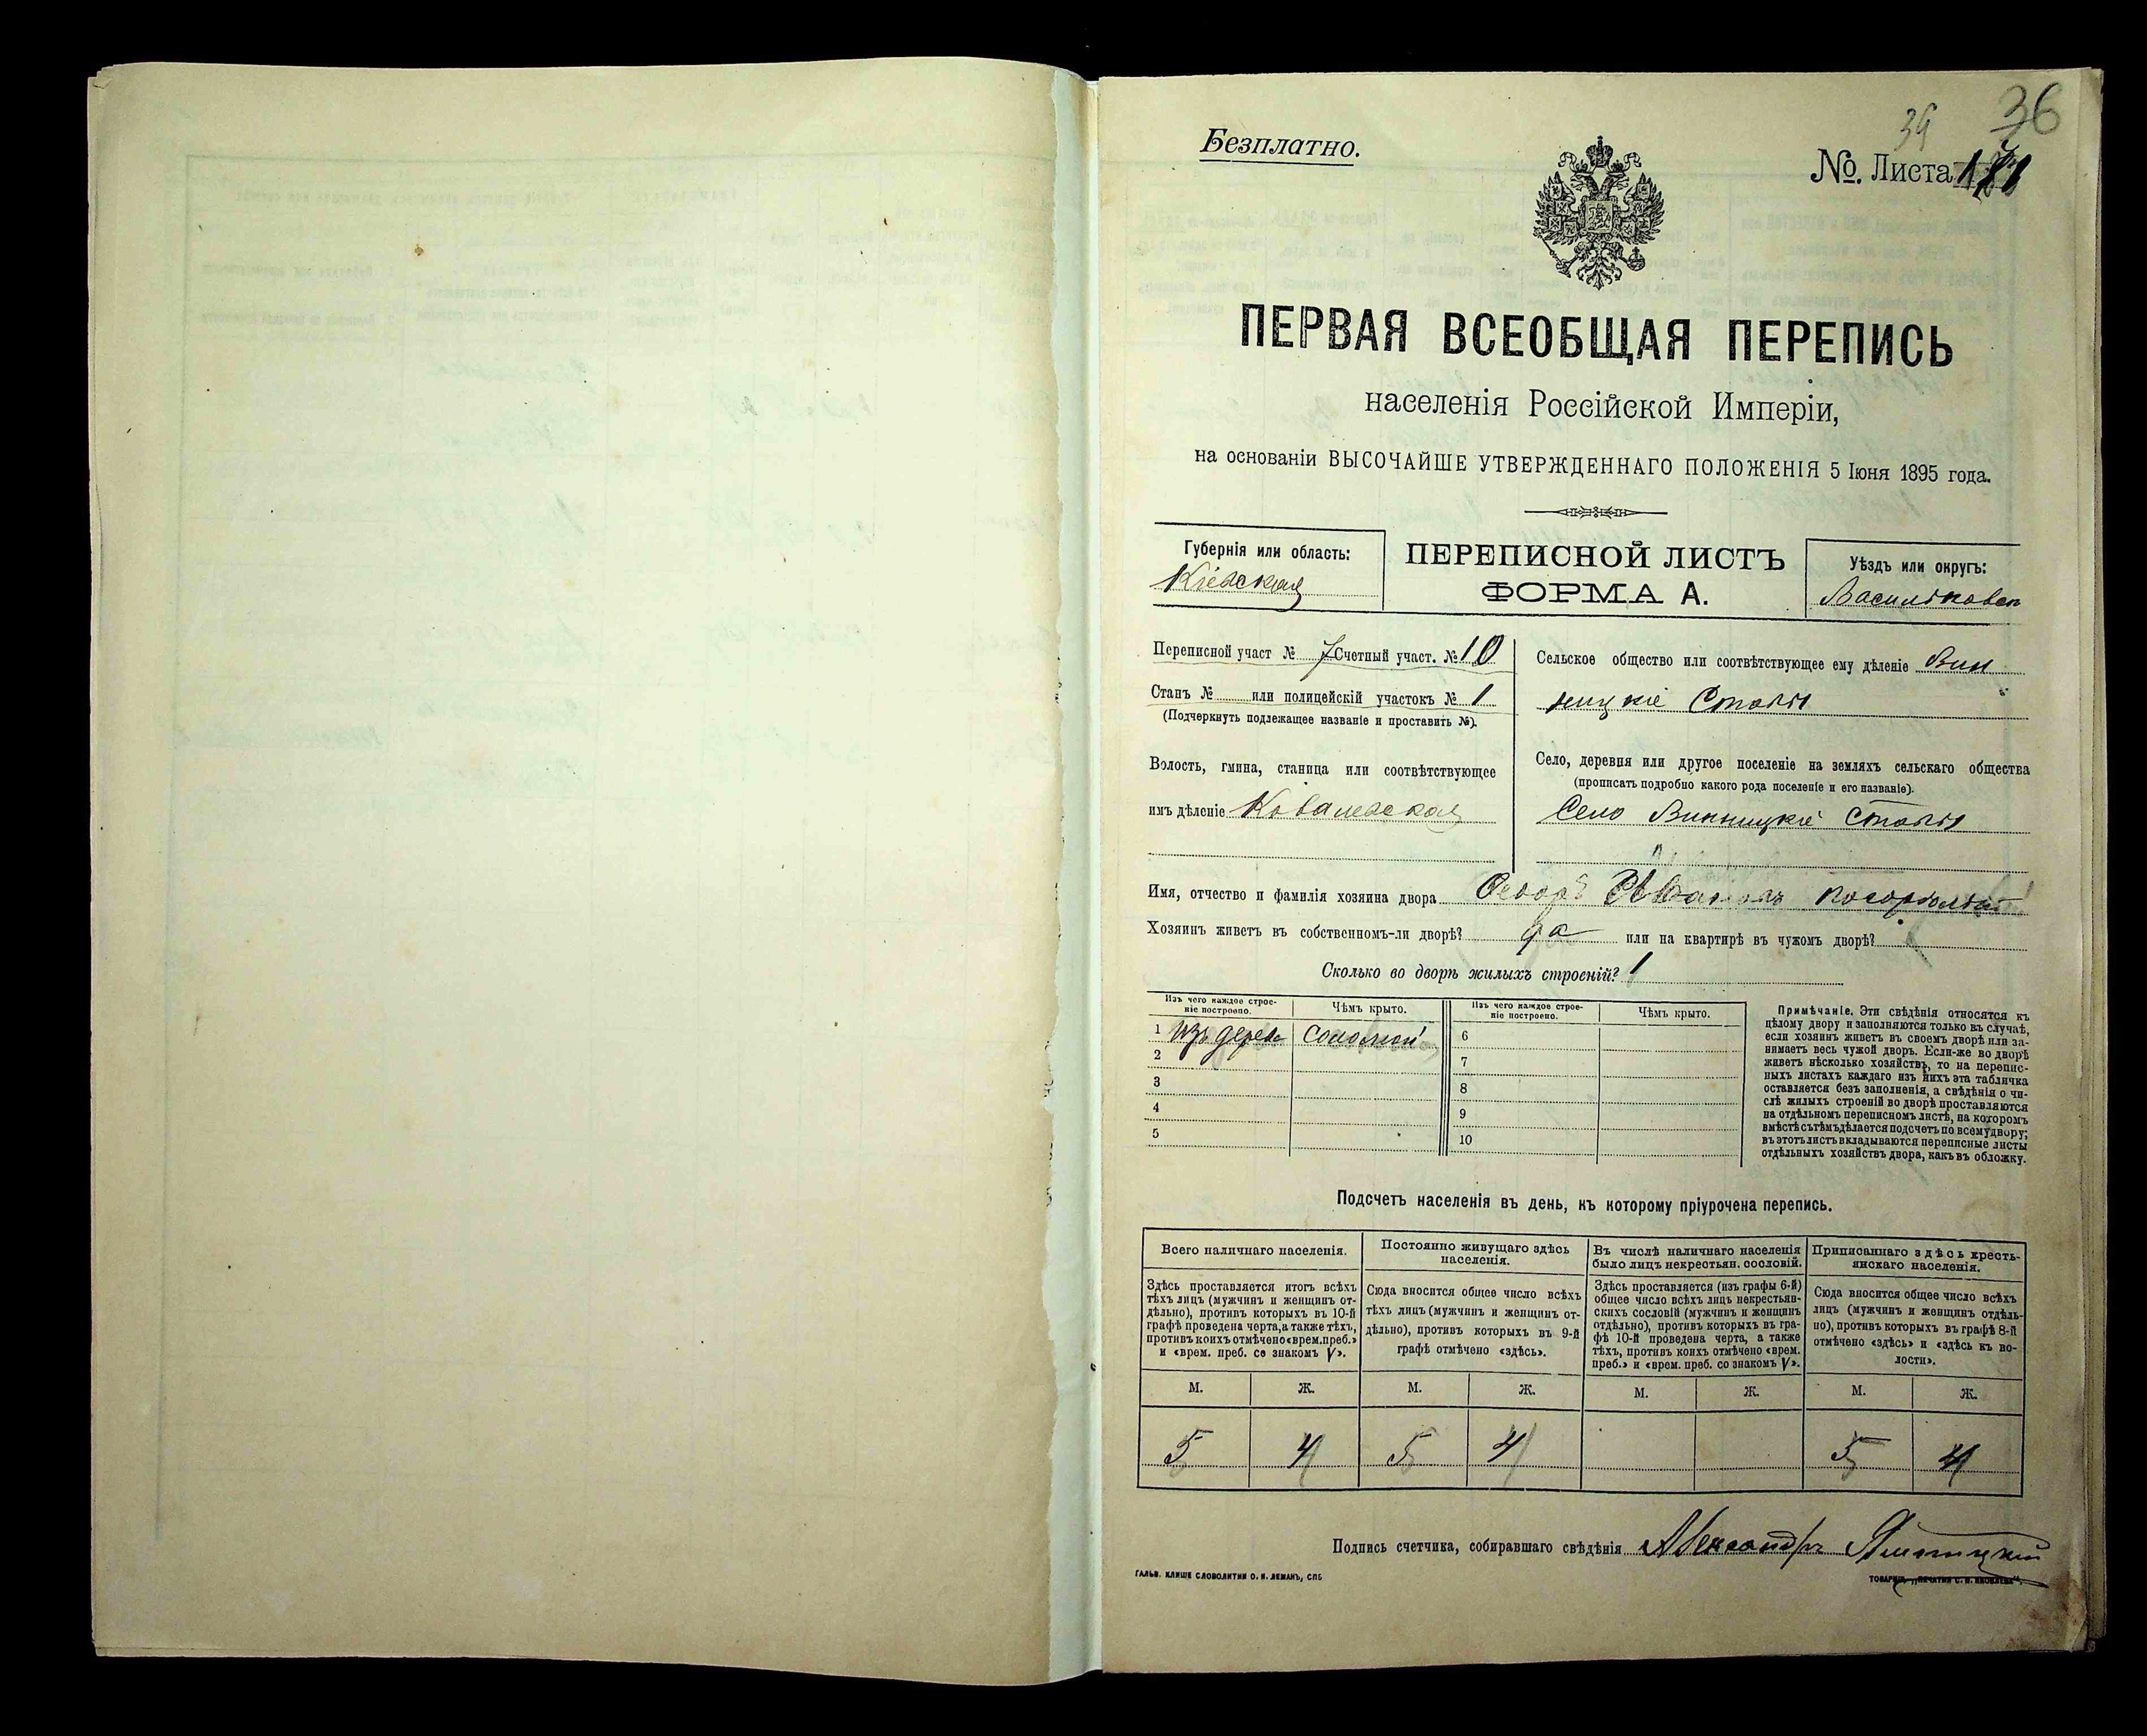 36
Безплатно.
№. Листа
ПЕРВАЯ ВСЕОБЩАЯ ПЕРЕПИСЬ
населенія Россійской Имперіи,
на основаніи ВЫСОЧАЙШЕ УТВЕРЖДЕННАГО ПОЛОЖЕНІЯ 5 Іюня 1895 года.
Губернія или область:
Кіевская
ПЕРЕПИСНОЙ ЛИСТЪ
ФОРМА А.
Уѣздъ или округъ:
Васильковск
Переписной участ № 7 Счетный участ. № 10
Станъ № или полицейскій участокъ № 1
(Подчеркнуть подлежащее названіе и проставить №).
Волость, гмина, станица или соотвѣтствующее
имъ дѣленіе Ковалевская
Сельское общество или соотвѣтствующее ему дѣленіе Вин
ницкіе Ставы
Село, деревня или другое поселеніе на земляхъ сельскаго общества
(прописать подробно какого рода поселеніе и его названіе).
Село Винницкіе Ставы
Имя, отчество и фамилія хозяина двора
Хозяинъ живетъ въ собственномъ-ли дворѣ? да или на квартирѣ въ чужомъ дворѣ?
Сколько во дворѣ жилыхъ строеній? 1
Изъ чего каждое строеніе построено.
Чѣмъ крыто.
Изъ чего каждое строеніе построено.
Чѣмъ крыто.
1 изъ дерева соломой 6
2 7
3 8
4 9
5 10
Примѣчаніе. Эти свѣдѣнія относятся къ
цѣлому двору и заполняются только въ случаѣ,
если хозяинъ живетъ въ своемъ дворѣ или за-
нимаетъ весь чужой дворъ. Если-же во дворѣ
живетъ нѣсколько хозяйствъ, то на перепис-
ныхъ листахъ каждаго изъ нихъ эта табличка
оставляется безъ заполненія, а свѣдѣнія о чи-
слѣ жилыхъ строеній во дворѣ проставляются
на отдѣльномъ переписномъ листѣ, на которомъ
вмѣстѣ съ тѣмъ дѣлается подсчетъ по всему двору;
въ этотъ листъ вкладываются переписные листы
отдѣльныхъ хозяйствъ двора, какъ въ обложку.
Подсчетъ населенія въ день, къ которому пріурочена перепись.
Всего наличнаго населенія.
Здѣсь проставляется итогъ всѣхъ
тѣхъ лицъ (мужчинъ и женщинъ от-
дѣльно), противъ которыхъ въ 10-й
графѣ проведена черта, а также тѣхъ,
противъ коихъ отмѣчено «врем. преб.»
и «врем. преб. со знакомъ V».
Постоянно живущаго здѣсь
населенія.
Сюда вносится общее число всѣхъ
тѣхъ лицъ (мужчинъ и женщинъ от-
дѣльно), противъ которыхъ въ 9-й
графѣ отмѣчено «здѣсь».
Въ числѣ наличнаго населенія
было лицъ некрестьян. сословій.
Здѣсь проставляется (изъ графы 6-й)
общее число всѣхъ лицъ некрестьян-
скихъ сословій (мужчинъ и женщинъ
отдѣльно), противъ которыхъ въ гра-
фѣ 10-й проведена черта, а также
тѣхъ, противъ коихъ отмѣчено «врем.
преб.» и «врем. преб. со знакомъ V».
Приписаннаго здѣсь кресть-
янскаго населенія.
Сюда вносится общее число всѣхъ
лицъ (мужчинъ и женщинъ отдѣль-
но), противъ которыхъ въ графѣ 8-й
отмѣчено «здѣсь» и «здѣсь къ во-
лости».
М. Ж. М. Ж. М. Ж. М. Ж.
5 4 5 4 5 4
Подпись счетчика, собиравшаго свѣдѣнія Александръ
ГАЛЬВ. КЛИШЕ СЛОВОЛИТНИ О. И. ЛЕМАНЪ, СПБ
ТОВАРИЩ. „ПЕЧАТНЯ С. П. ЯКОВЛЕВА".